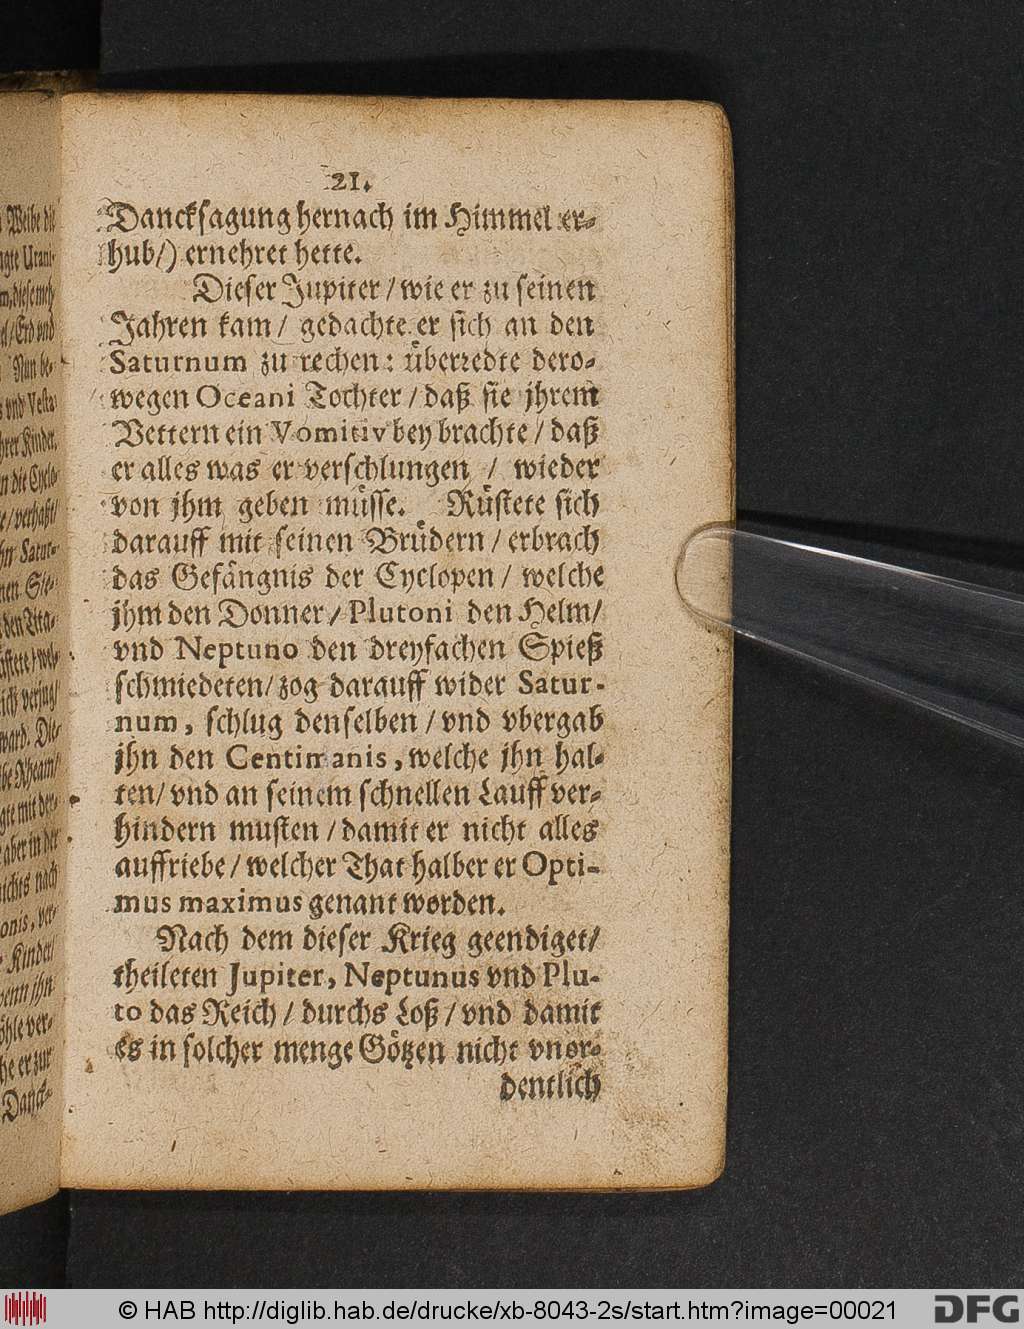 21.
Danckſagung hernach im Himmel er-
hub/) ernehret hette.
Dieſer Jupiter / wie er zu ſeinen
Jahren kam / gedachte er ſich an den
Saturnum zu rechen: uͤberredte dero-
wegen Oceani Tochter / daß ſie jhrem
Vettern ein Vomitiv bey brachte / daß
er alles was er verſchlungen / wieder
von jhm geben muͤſſe. Ruͤſtete ſich
darauff mit ſeinen Bruͤdern / erbrach
das Gefaͤngnis der Cyclopen / welche
jhm den Donner / Plutoni den Helm/
vnd Neptuno den dreyfachen Spieß
ſchmiedeten/ zog darauff wider Satur-
num, ſchlug denſelben / vnd vbergab
jhn den Centimanis, welche jhn hal-
ten/ vnd an ſeinem ſchnellen Lauff ver-
hindern muſten / damit er nicht alles
auffriebe / welcher That halber er Opti-
mus maximus genant worden.
Nach dem dieſer Krieg geendiget/
theileten Jupiter, Neptunus vnd Plu-
to das Reich / durchs Loß / vnd damit
es in ſolcher menge Goͤtzen nicht vnor-
dentlich
Weibe die
Nun be-
vnd Veſta
Kinder,
die Cyclo-
Satur-
den Tita-
ward. Die-
Rheam/
mit der-
aber in der
nach
Kinder/
wenn jhn
er zur
Danck-
© HAB http://diglib.hab.de/drucke/xb-8043-2s/start.htm?image=00021
DFG